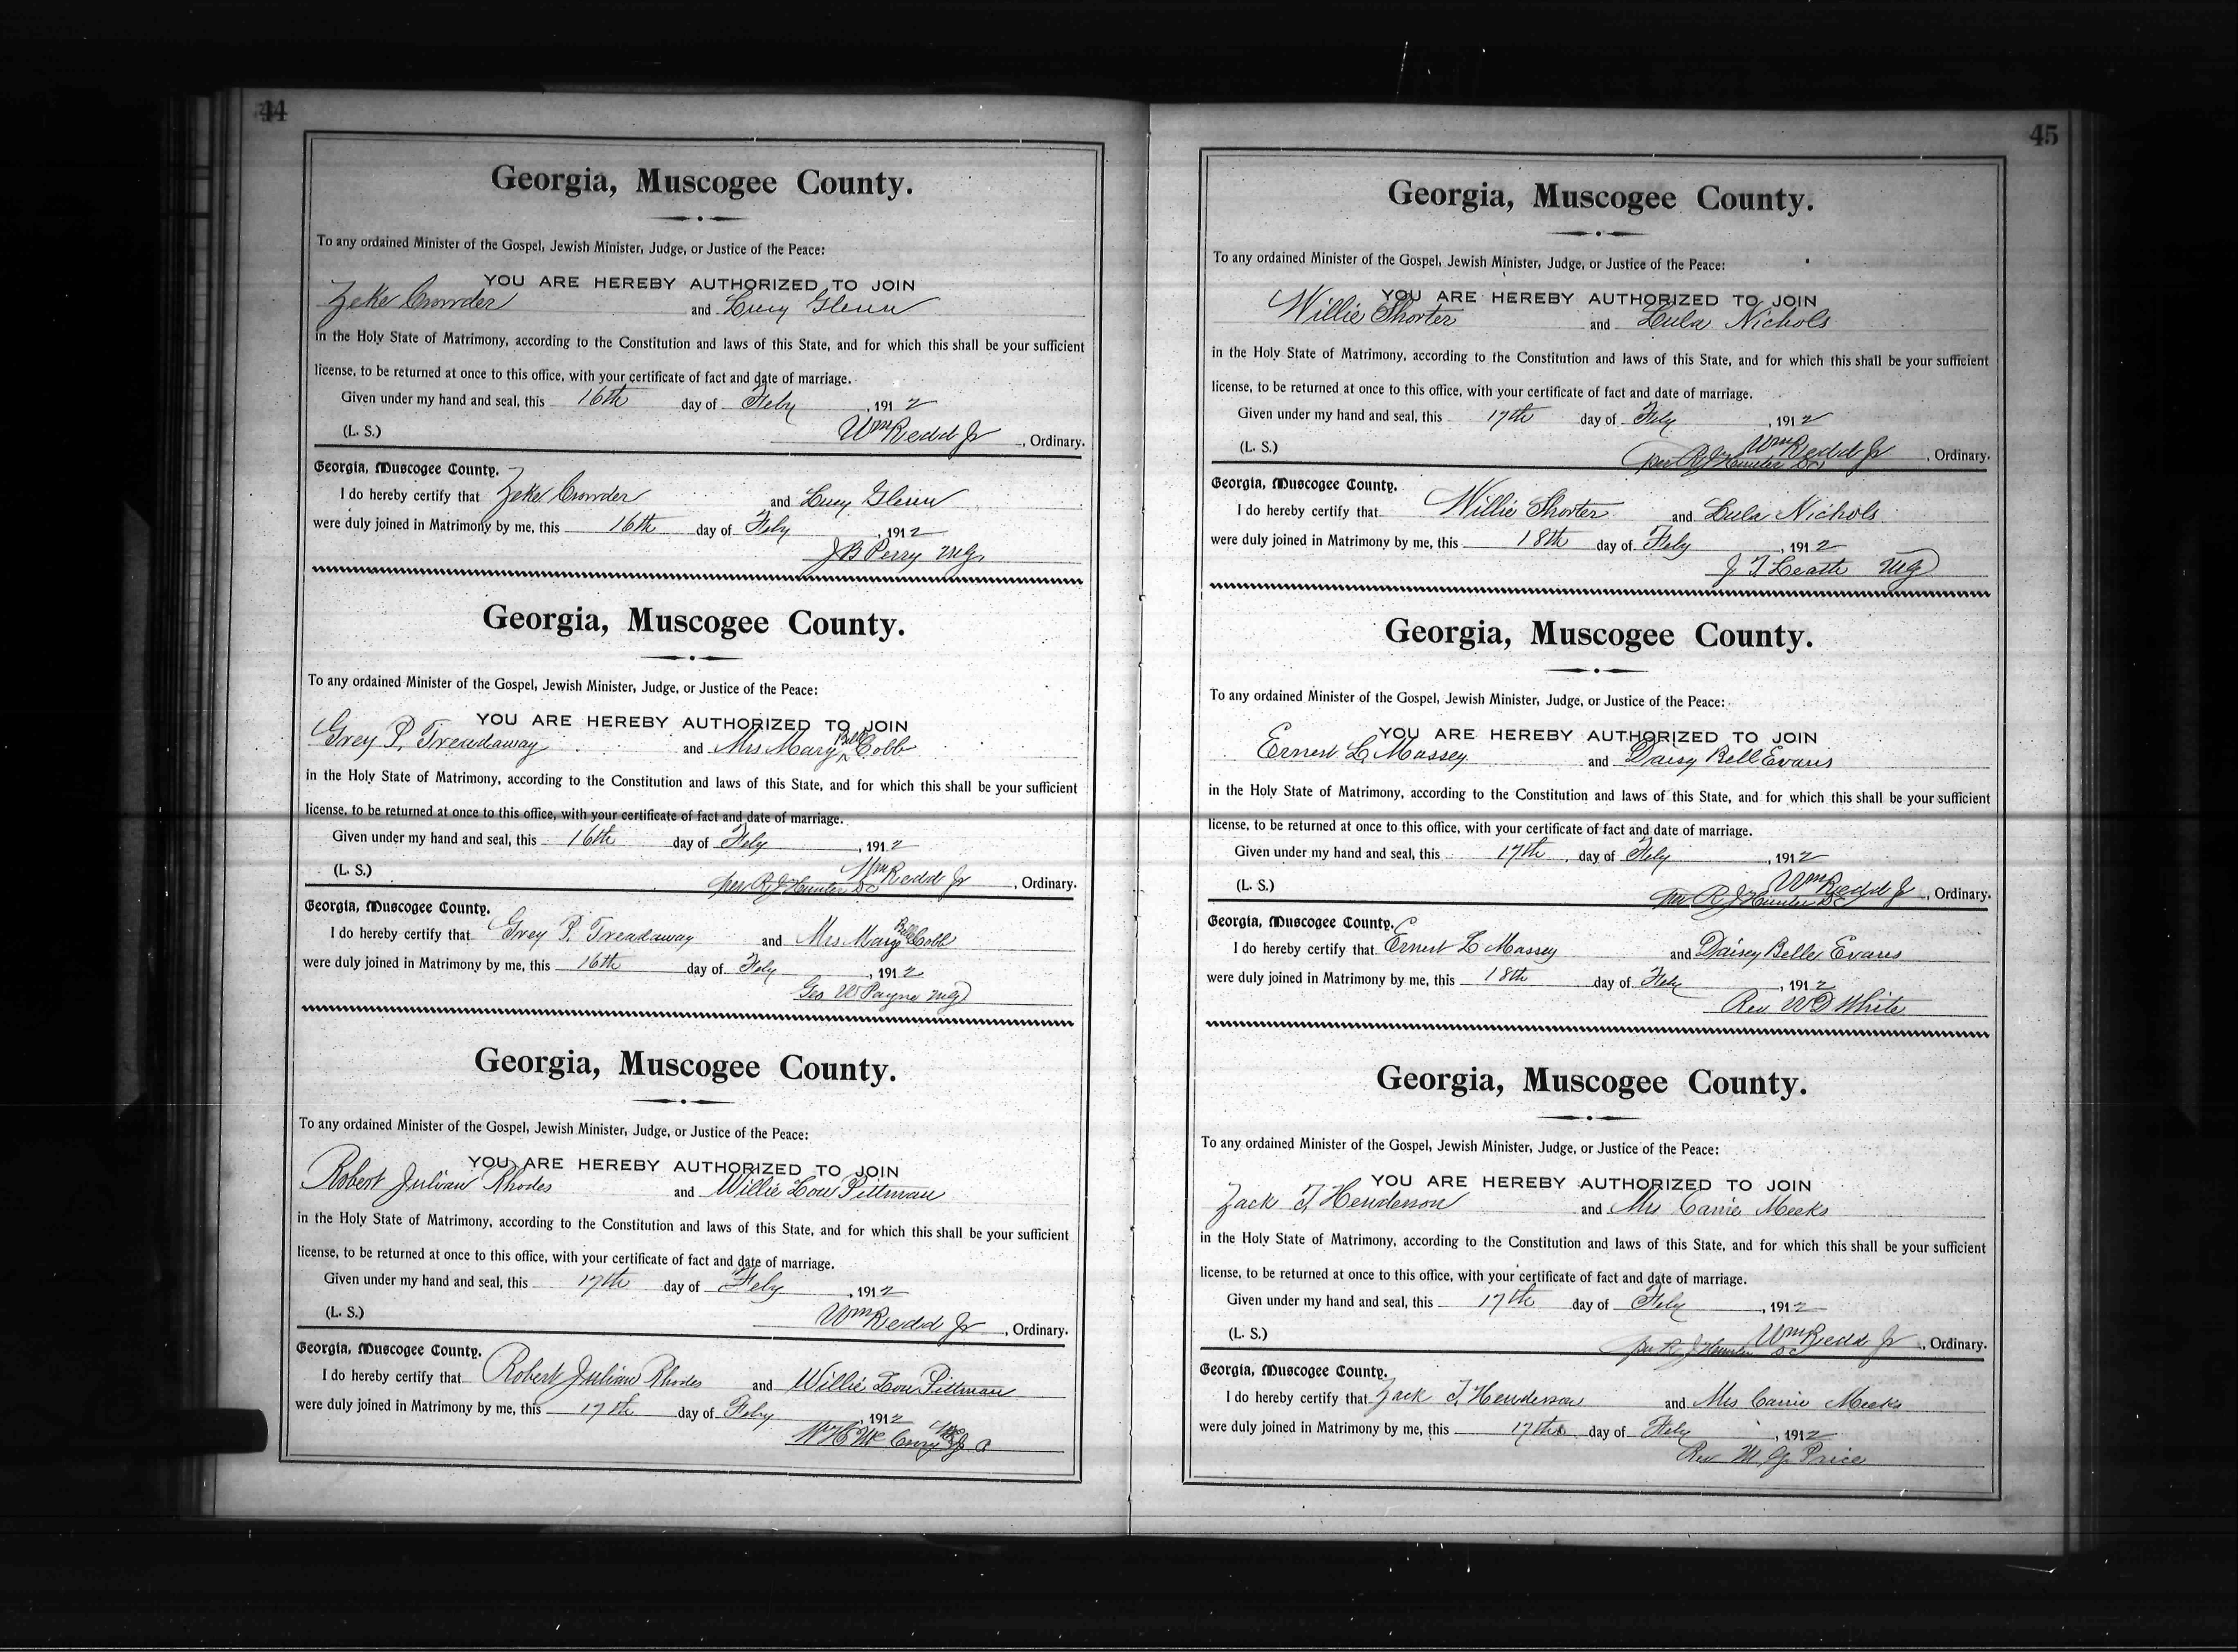 44
Georgia, Muscogee County.
To any ordained Minister of the Gospel, Jewish Minister, Judge, or Justice of the Peace:
YOU ARE HEREBY AUTHORIZED TO JOIN
Zeke Crowder and Lucy Glenn
in the Holy State of Matrimony, according to the Constitution and laws of this State, and for which this shall be your sufficient
license, to be returned at once to this office, with your certificate of fact and date of marriage.
Given under my hand and seal, this 16th day of Feby, 1912
(L. S.) Wm Redd Jr, Ordinary.
Georgia, Muscogee County.
I do hereby certify that Zeke Crowder and Lucy Glenn
were duly joined in Matrimony by me, this 16th day of Feby, 1912
J B Perry M.G.
Georgia, Muscogee County.
To any ordained Minister of the Gospel, Jewish Minister, Judge, or Justice of the Peace:
YOU ARE HEREBY AUTHORIZED TO JOIN
Grey P. Treadaway and Mrs Mary Bell Cobb
in the Holy State of Matrimony, according to the Constitution and laws of this State, and for which this shall be your sufficient
license, to be returned at once to this office, with your certificate of fact and date of marriage.
Given under my hand and seal, this 16th day of Feby, 1912
(L. S.) Wm Redd Jr, Ordinary.
per R J Hunter DC
Georgia, Muscogee County.
I do hereby certify that Grey P. Treadaway and Mrs Mary Bell Cobb
were duly joined in Matrimony by me, this 16th day of Feby, 1912
Geo W Payne MG
Georgia, Muscogee County.
To any ordained Minister of the Gospel, Jewish Minister, Judge, or Justice of the Peace:
YOU ARE HEREBY AUTHORIZED TO JOIN
Robert Julian Rhodes and Willie Lou Pittman
in the Holy State of Matrimony, according to the Constitution and laws of this State, and for which this shall be your sufficient
license, to be returned at once to this office, with your certificate of fact and date of marriage.
Given under my hand and seal, this 17th day of Feby, 1912
(L. S.) Wm Redd Jr, Ordinary.
Georgia, Muscogee County.
I do hereby certify that Robert Julian Rhodes and Willie Lou Pittman
were duly joined in Matrimony by me, this 17th day of Feby, 1912
45
Georgia, Muscogee County.
To any ordained Minister of the Gospel, Jewish Minister, Judge, or Justice of the Peace:
YOU ARE HEREBY AUTHORIZED TO JOIN
Willie Shorter and Lula Nichols
in the Holy State of Matrimony, according to the Constitution and laws of this State, and for which this shall be your sufficient
license, to be returned at once to this office, with your certificate of fact and date of marriage.
Given under my hand and seal, this 17th day of Feby, 1912
(L. S.) Wm Redd Jr, Ordinary.
per R J Hunter DC
Georgia, Muscogee County.
I do hereby certify that Willie Shorter and Lula Nichols
were duly joined in Matrimony by me, this 18th day of Feby, 1912
J T Leath MG
Georgia, Muscogee County.
To any ordained Minister of the Gospel, Jewish Minister, Judge, or Justice of the Peace:
YOU ARE HEREBY AUTHORIZED TO JOIN
Ernest L Massey and Daisy Bell Evans
in the Holy State of Matrimony, according to the Constitution and laws of this State, and for which this shall be your sufficient
license, to be returned at once to this office, with your certificate of fact and date of marriage.
Given under my hand and seal, this 17th day of Feby, 1912
(L. S.) Wm Redd Jr, Ordinary.
per R J Hunter DC
Georgia, Muscogee County.
I do hereby certify that Ernest L Massey and Daisey Belle Evans
were duly joined in Matrimony by me, this 18th day of Feby, 1912
Rev W D White
Georgia, Muscogee County.
To any ordained Minister of the Gospel, Jewish Minister, Judge, or Justice of the Peace:
YOU ARE HEREBY AUTHORIZED TO JOIN
Zack T. Henderson and Mrs Carrie Meeks
in the Holy State of Matrimony, according to the Constitution and laws of this State, and for which this shall be your sufficient
license, to be returned at once to this office, with your certificate of fact and date of marriage.
Given under my hand and seal, this 17th day of Feby, 1912
(L. S.) Wm Redd Jr, Ordinary.
per R J Hunter DC
Georgia, Muscogee County.
I do hereby certify that Zack T. Henderson and Mrs Carrie Meeks
were duly joined in Matrimony by me, this 17th day of Feby, 1912
Rev M. G. Price